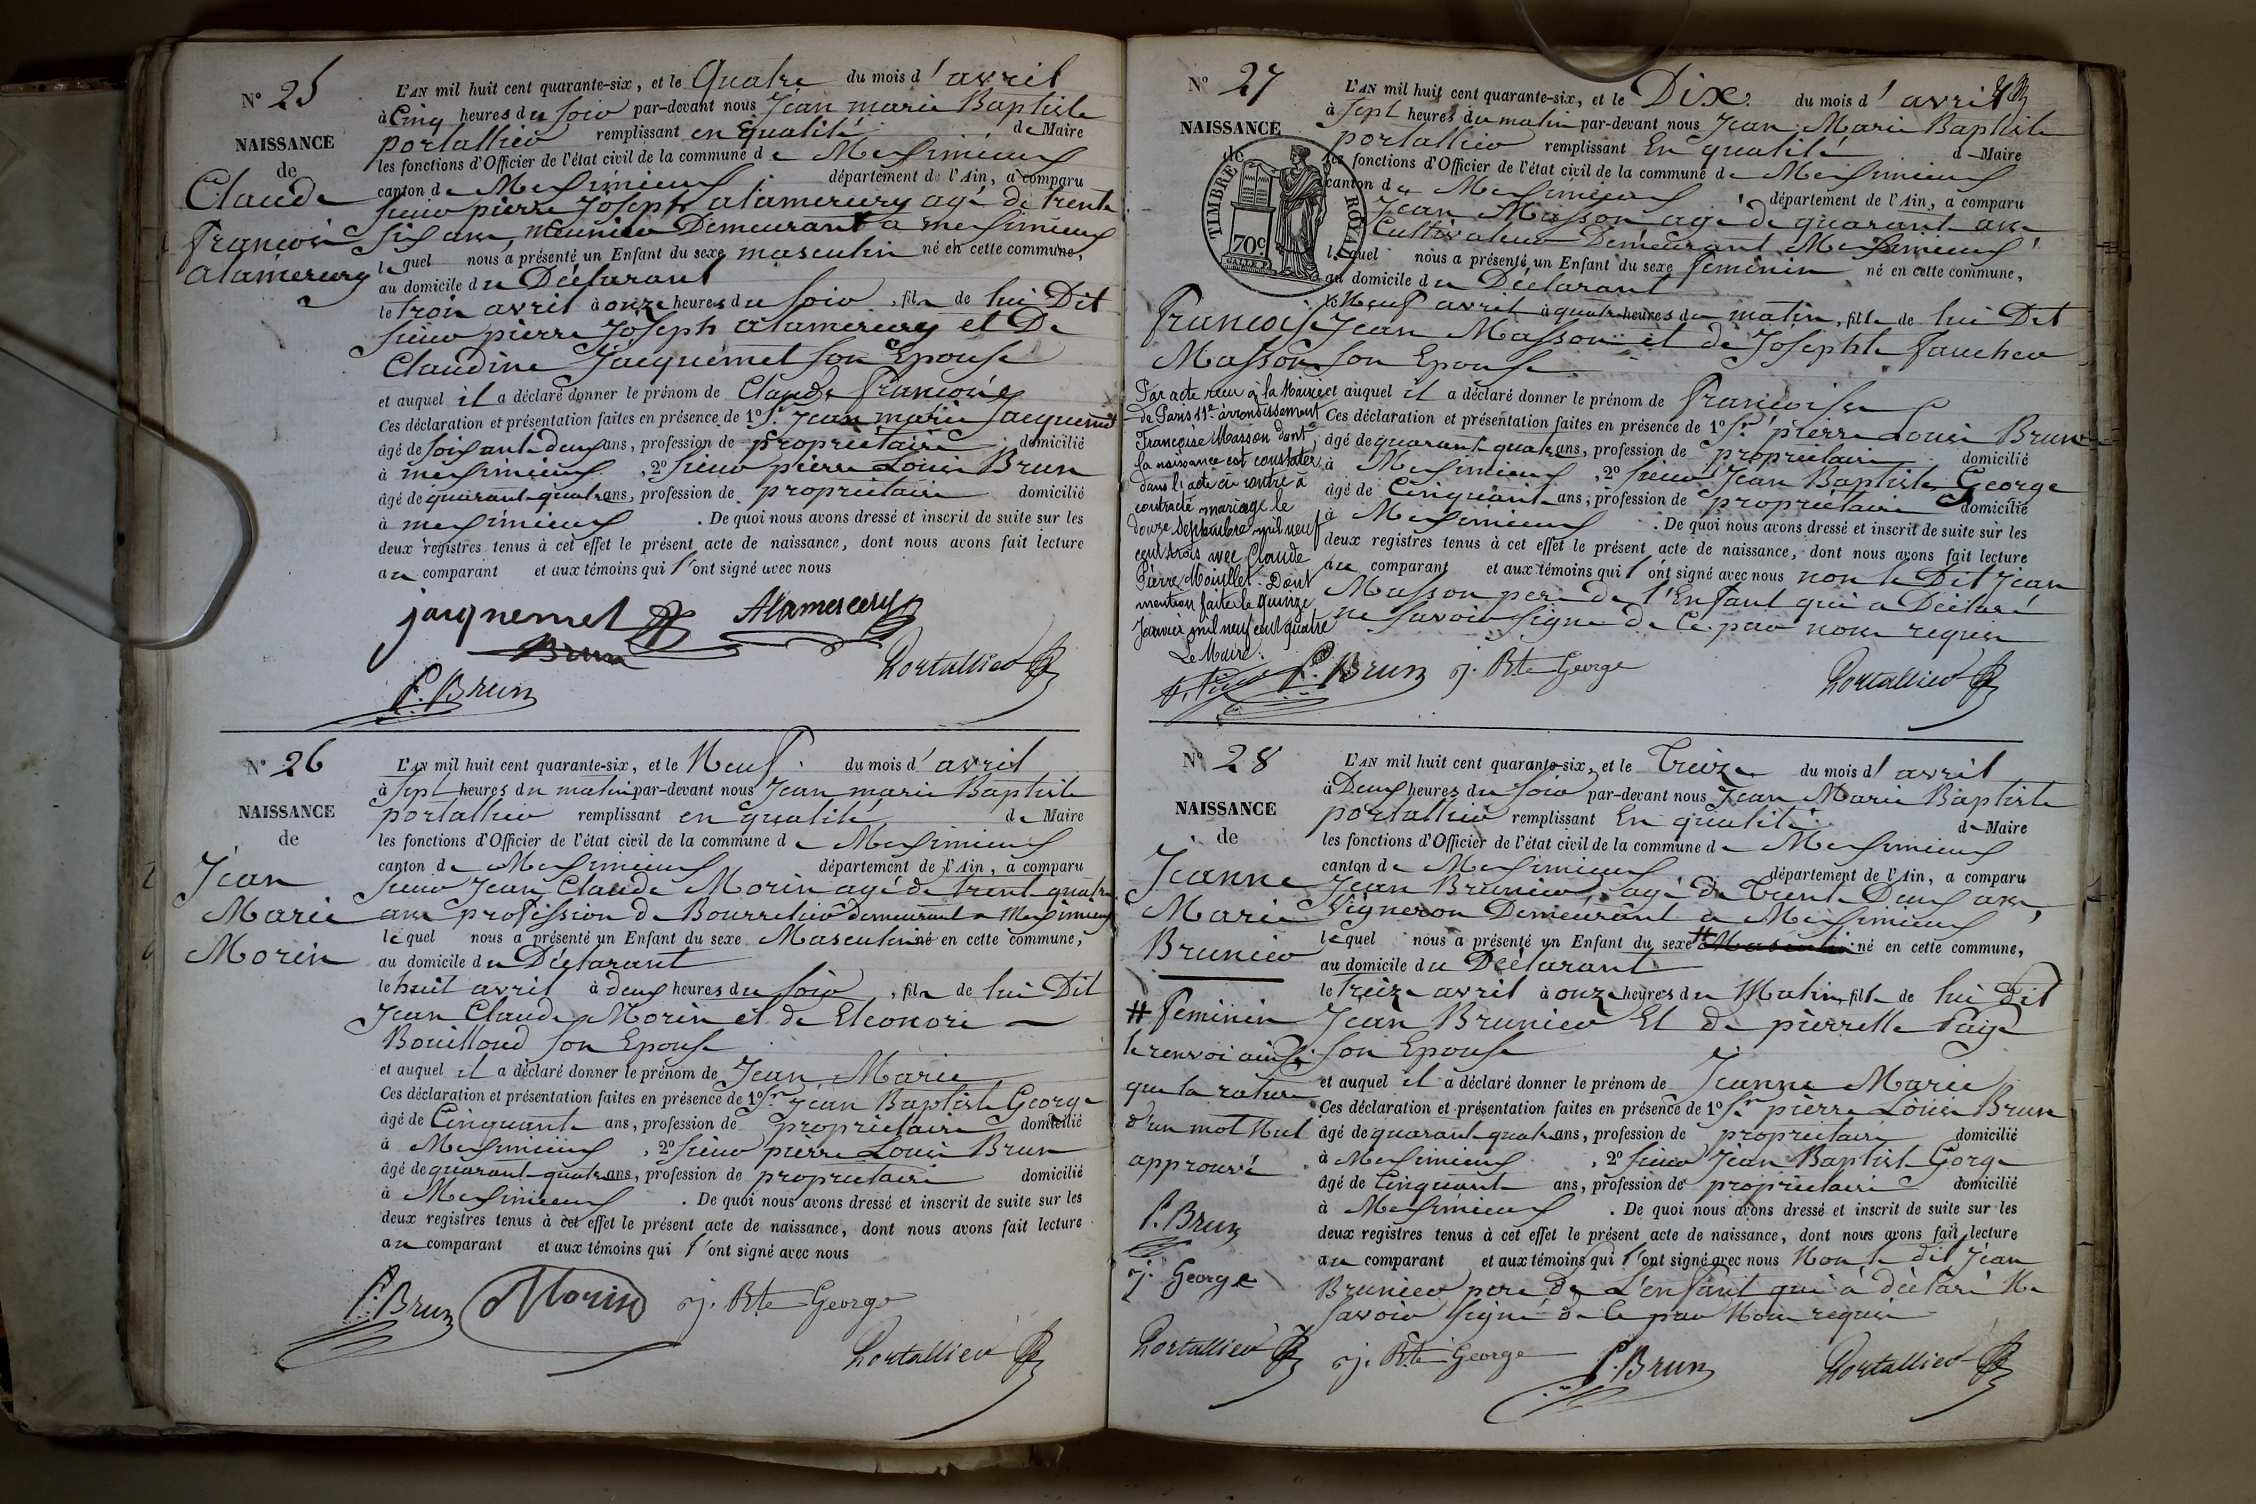 N° 25
NAISSANCE
de
Claude
François
alamercery
L'AN mil huit cent quarante-six, et le Quatre du mois d'avril
à Cinq heures du soir par-devant nous Jean marie Baptiste
portallier remplissant en qualité de Maire
les fonctions d'Officier de l'état civil de la commune de Meximieux
canton de Meximieux département de l'Ain, a comparu
sieur pierre Joseph alamercery agé de trente
six ans, meunier Demeurant a meximieux
lequel nous a présenté un Enfant du sexe masculin né en cette commune,
au domicile du Déclarant
le trois avril à onze heures du soir, fils de lui Dit
sieur pierre Joseph alamercery et De
Claudine Jacquemet son Epouse
et auquel il a déclaré donner le prénom de Claude François
Ces déclaration et présentation faites en présence de 1° Sr Jean marie Jacquemet
âgé de soixante deux ans, profession de propriétaire domicilié
à meximieux, 2° sieur pierre Louis Brun
âgé de quarante quatre ans, profession de propriétaire domicilié
à meximieux. De quoi nous avons dressé et inscrit de suite sur les
deux registres tenus à cet effet le présent acte de naissance, dont nous avons fait lecture
au comparant et aux témoins qui l'ont signé avec nous
jacquemet Alamercery
Brun
Portallier
P. Brun
N° 26
NAISSANCE
de
Jean
Marie
Morin
L'AN mil huit cent quarante-six, et le Neuf du mois d'avril
à sept heures du matin par-devant nous Jean marie Baptiste
portallier remplissant en qualité de Maire
les fonctions d'Officier de l'état civil de la commune de Meximieux
canton de Meximieux département de l'Ain, a comparu
sieur Jean Claude Morin agé de trente quatre
ans profession de Bourrelier demeurant a Meximieux
lequel nous a présenté un Enfant du sexe Masculin né en cette commune,
au domicile du Déclarant
le huit avril à deux heures du soir, fils de lui Dit
Jean Claude Morin et de Eléonore
Bouilloud son Epouse
et auquel il a déclaré donner le prénom de Jean Marie
Ces déclaration et présentation faites en présence de 1° Sr Jean Baptiste George
âgé de Cinquante ans, profession de propriétaire domicilié
à Meximieux, 2° sieur pierre Louis Brun
âgé de quarante quatre ans, profession de propriétaire domicilié
à Meximieux. De quoi nous avons dressé et inscrit de suite sur les
deux registres tenus à cet effet le présent acte de naissance, dont nous avons fait lecture
au comparant et aux témoins qui l'ont signé avec nous
P. Brun Morin j. Bte George
Portallier
N° 27
NAISSANCE
de
TIMBRE ROYAL
70c
Françoise
Masson
L'AN mil huit cent quarante-six, et le Dix du mois d'avril
à sept heures du matin par-devant nous Jean Marie Baptiste
portallier remplissant En qualité de Maire
les fonctions d'Officier de l'état civil de la commune de Meximieux
canton de Meximieux département de l'Ain, a comparu
Jean Masson agé de quarante ans
Cultivateur Demeurant Meximieux
lequel nous a présenté un Enfant du sexe féminin né en cette commune,
au domicile du Déclarant
le Neuf avril à quatre heures du matin, fille de lui Dit
Jean Masson et de Josephte faucher
son Epouse
et auquel il a déclaré donner le prénom de françoise
Ces déclaration et présentation faites en présence de 1° Sr pierre Louis Brun
âgé de quarante quatre ans, profession de propriétaire domicilié
à Meximieux, 2° sieur Jean Baptiste George
âgé de Cinquante ans, profession de propriétaire domicilié
à Meximieux. De quoi nous avons dressé et inscrit de suite sur les
deux registres tenus à cet effet le présent acte de naissance, dont nous avons fait lecture
au comparant et aux témoins qui l'ont signé avec nous non le Dit Jean
Masson pere de l'Enfant qui a Déclaré
ne savoir signé de Ce par nous requis
Par acte reçu à la Mairie
de Paris 11e arrondissement
Françoise Masson dont
la naissance est constatée
dans l'acte ci contre a
contracté mariage le
douze Septembre mil neuf
cent trois avec Claude
Pierre Moiullet. Dont
mention faite le quinze
Janvier mil neuf cent quatre
Le Maire.
P. Brun j. Bte George Portallier
N° 28
NAISSANCE
de
Jeanne
Marie
Brunier
# feminin
le renvoi ainsi
que la rature
d'un mot Nul
approuvé
P. Brun
j. George
Portallier
L'AN mil huit cent quarante-six, et le Treize du mois d'avril
à Deux heures du soir par-devant nous Jean Marie Baptiste
portallier remplissant En qualité de Maire
les fonctions d'Officier de l'état civil de la commune de Meximieux
canton de Meximieux département de l'Ain, a comparu
Jean Brunier, agé de Trente Deux ans,
Vigneron Demeurant a Meximieux
lequel nous a présenté un Enfant du sexe # Masculin né en cette commune,
au domicile du Déclarant
le treize avril à onze heures du Matin, fille de lui Dit
Jean Brunier Et de pierrette Page
son Epouse
et auquel il a déclaré donner le prénom de Jeanne Marie
Ces déclaration et présentation faites en présence de 1° Sr pierre Louis Brun
âgé de quarante quatre ans, profession de propriétaire domicilié
à Meximieux, 2° sieur Jean Baptiste Gorge
âgé de Cinquante ans, profession de propriétaire domicilié
à Meximieux. De quoi nous avons dressé et inscrit de suite sur les
deux registres tenus à cet effet le présent acte de naissance, dont nous avons fait lecture
au comparant et aux témoins qui l'ont signé avec nous Non le dit Jean
Brunier pere de L'enfant qui a déclaré Ne
savoir signé de Ce par Nous requis
j. Bte George P. Brun Portallier